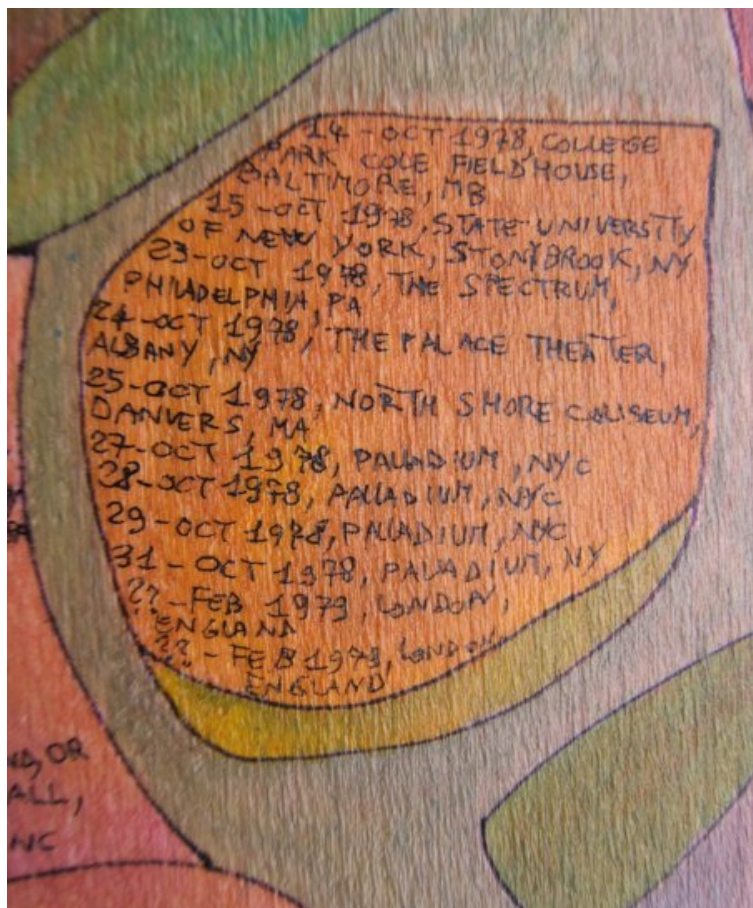 14-OCT 1978, COLLEGE
PARK COLE FIELDHOUSE,
BALTIMORE, MB
15-OCT 1978, STATE UNIVERSITY
OF NEW YORK, STONYBROOK, NY
23-OCT 1978, THE SPECTRUM,
PHILADELPHIA, PA
24-OCT 1978, THE PALACE THEATER,
ALBANY, NY
25-OCT 1978, NORTH SHORE COLISEUM,
DANVERS, MA
27-OCT 1978, PALLADIUM, NYC
28-OCT 1978, PALLADIUM, NYC
29-OCT 1978, PALLADIUM, NYC
31-OCT 1978, PALLADIUM, NY
??-FEB 1979, LONDON,
ENGLAND
??-FEB 1979, LONDON
ENGLAND
OR
ALL,
NC